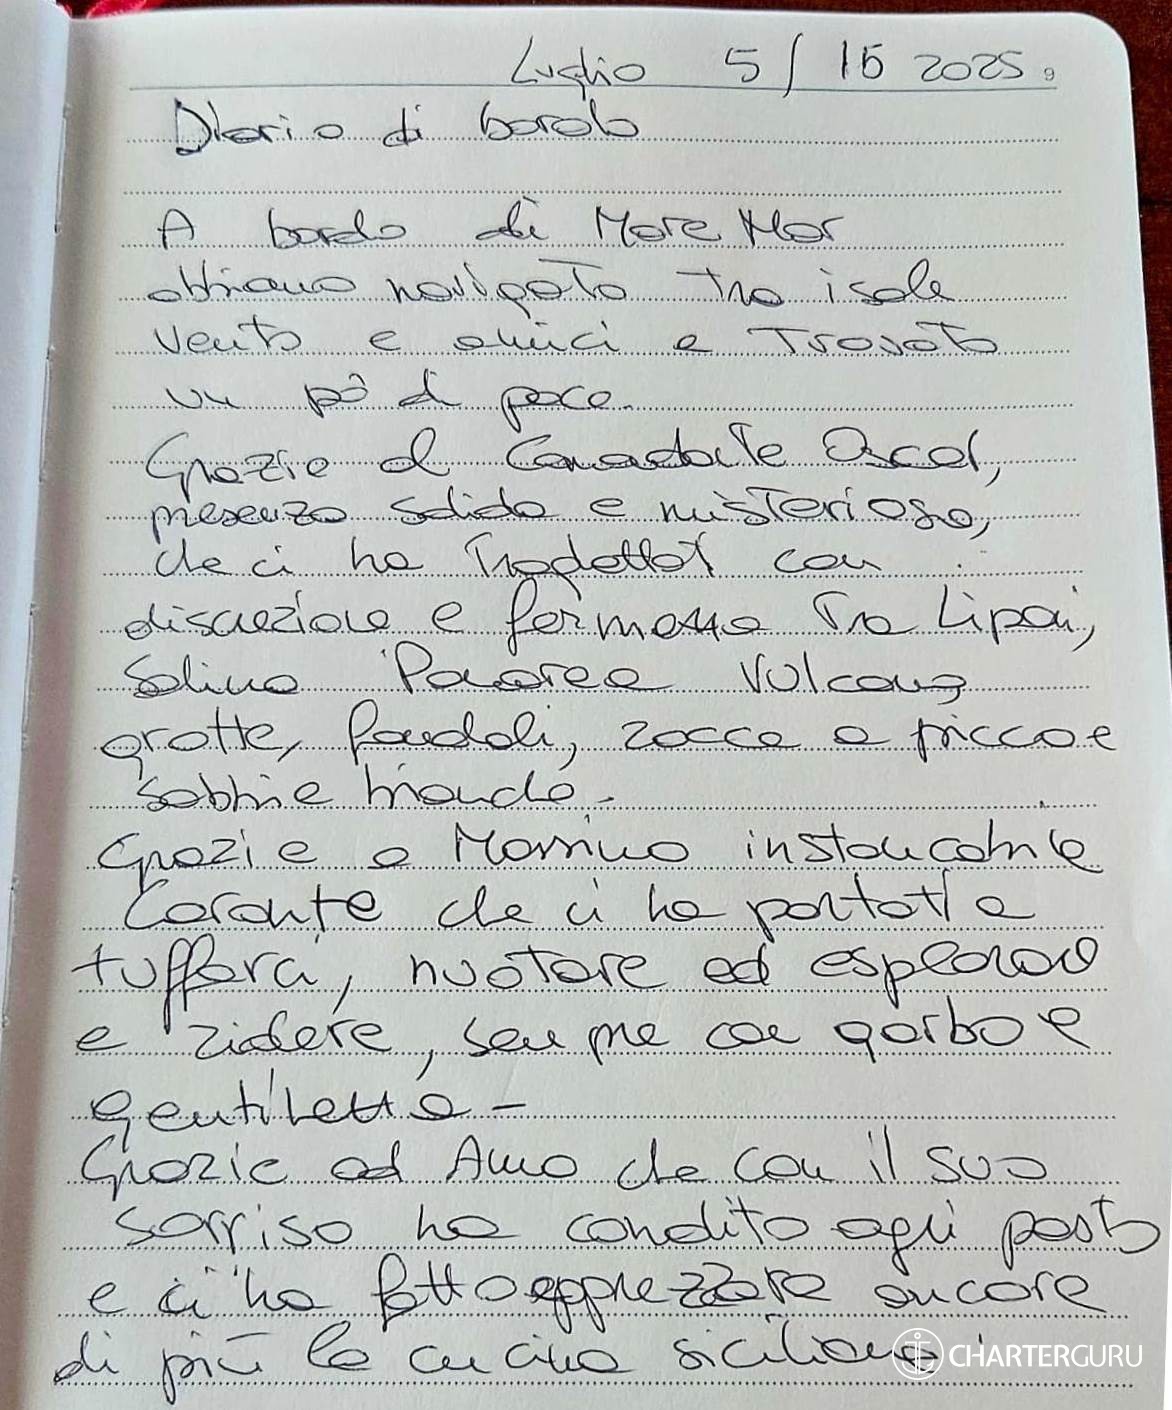 Luglio 5/15 2025
9
Diario di bordo
A bordo di More Mar
abbiamo navigato tra isole
vento e amici e trovato
un pò di pace.
Grazie al Comandante Oscar,
presenza solida e misteriosa,
che ci ha Traghettati con
discrezione e fermezza Tra Lipari,
Salina Panarea Vulcano
grotte, fondali, rocce a picco e
sabbie bianche.
Grazie a Massimo instancabile
Caronte che ci ha portati a
tuffarci, nuotare ed esplorare
e ridere, sempre con garbo e
gentilezza -
Grazie ad Anna che con il suo
sorriso ha condito ogni pasto
e ci ha fatto apprezzare ancora
di più la cucina siciliana
CHARTERGURU